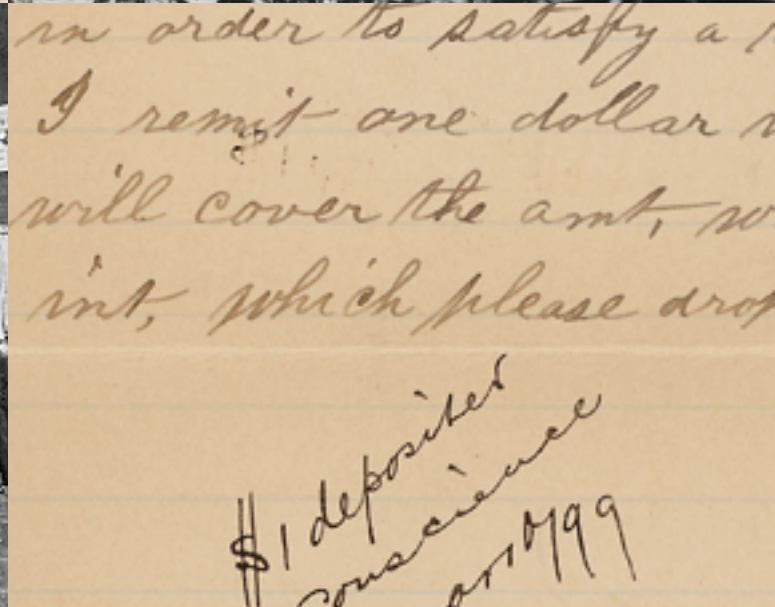 in order to satisfy a
I remit one dollar
will cover the amt,
int, which please drop
$1 deposited
conscience